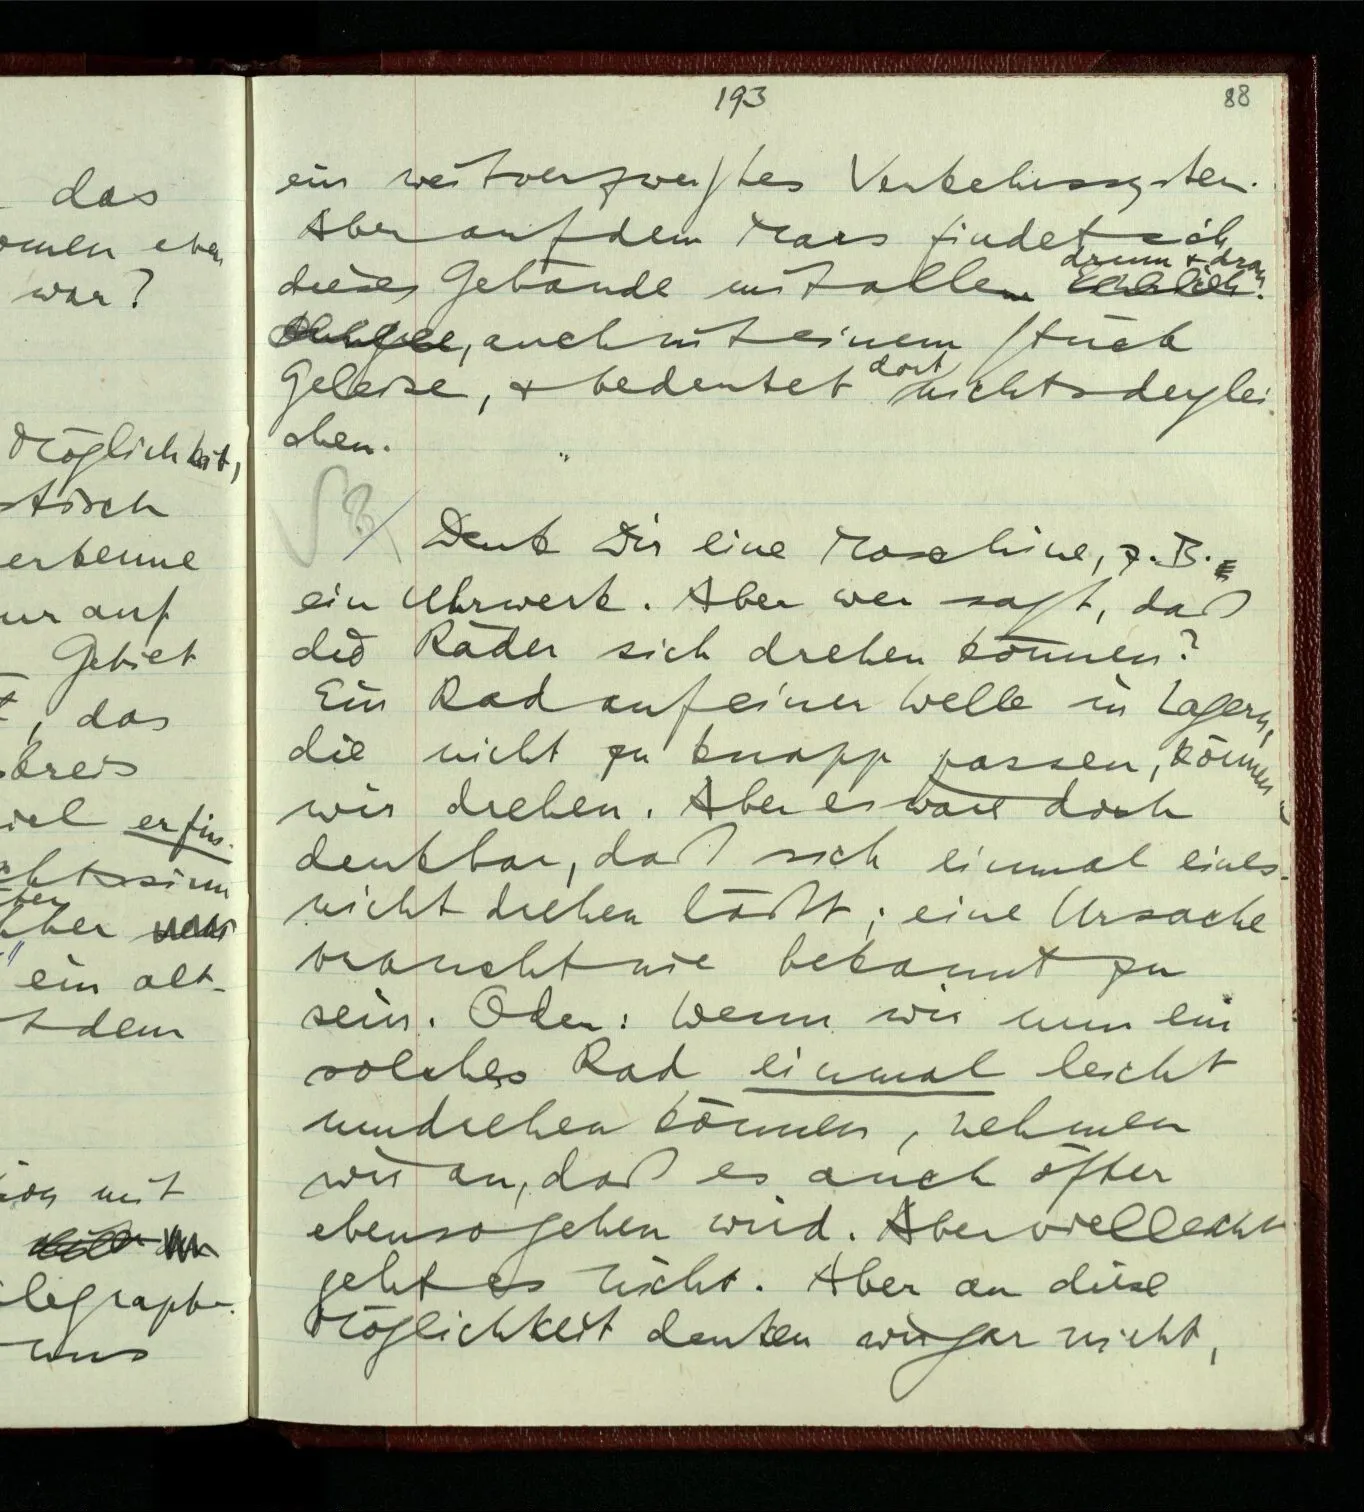 das
omen eben
war?
Möglichkeit,
stisch
erkenne
ur auf
Gebiet
, das
kreis
iel erfin-
chtssinn
ein alt-
t dem
ion mit
elegraph-
uns
193
88
ein weitverzweigtes Verkehrssystem.
Aber auf dem Mars findet sich
drum & dran
dieses Gebäude mit allem
, auch mit einem Stück
dort
Geleise, & bedeutet nichts derglei
chen.
S
/ Denk Dir eine Maschine, z.B.
ein Uhrwerk. Aber wer sagt, daß
die Räder sich drehen können?
Ein Rad auf einer Welle in Lagern,
die nicht zu knapp passen, können
wir drehen. Aber es wäre doch
denkbar, daß sich einmal eines
nicht drehen läßt; eine Ursache
braucht nie bekannt zu
sein. Oder: Wenn wir nun ein
solches Rad einmal leicht
umdrehen können, nehmen
wir an, daß es auch öfter
ebenso gehen wird. Aber vielleicht
geht es nicht. Aber an diese
Möglichkeit denken wir gar nicht,